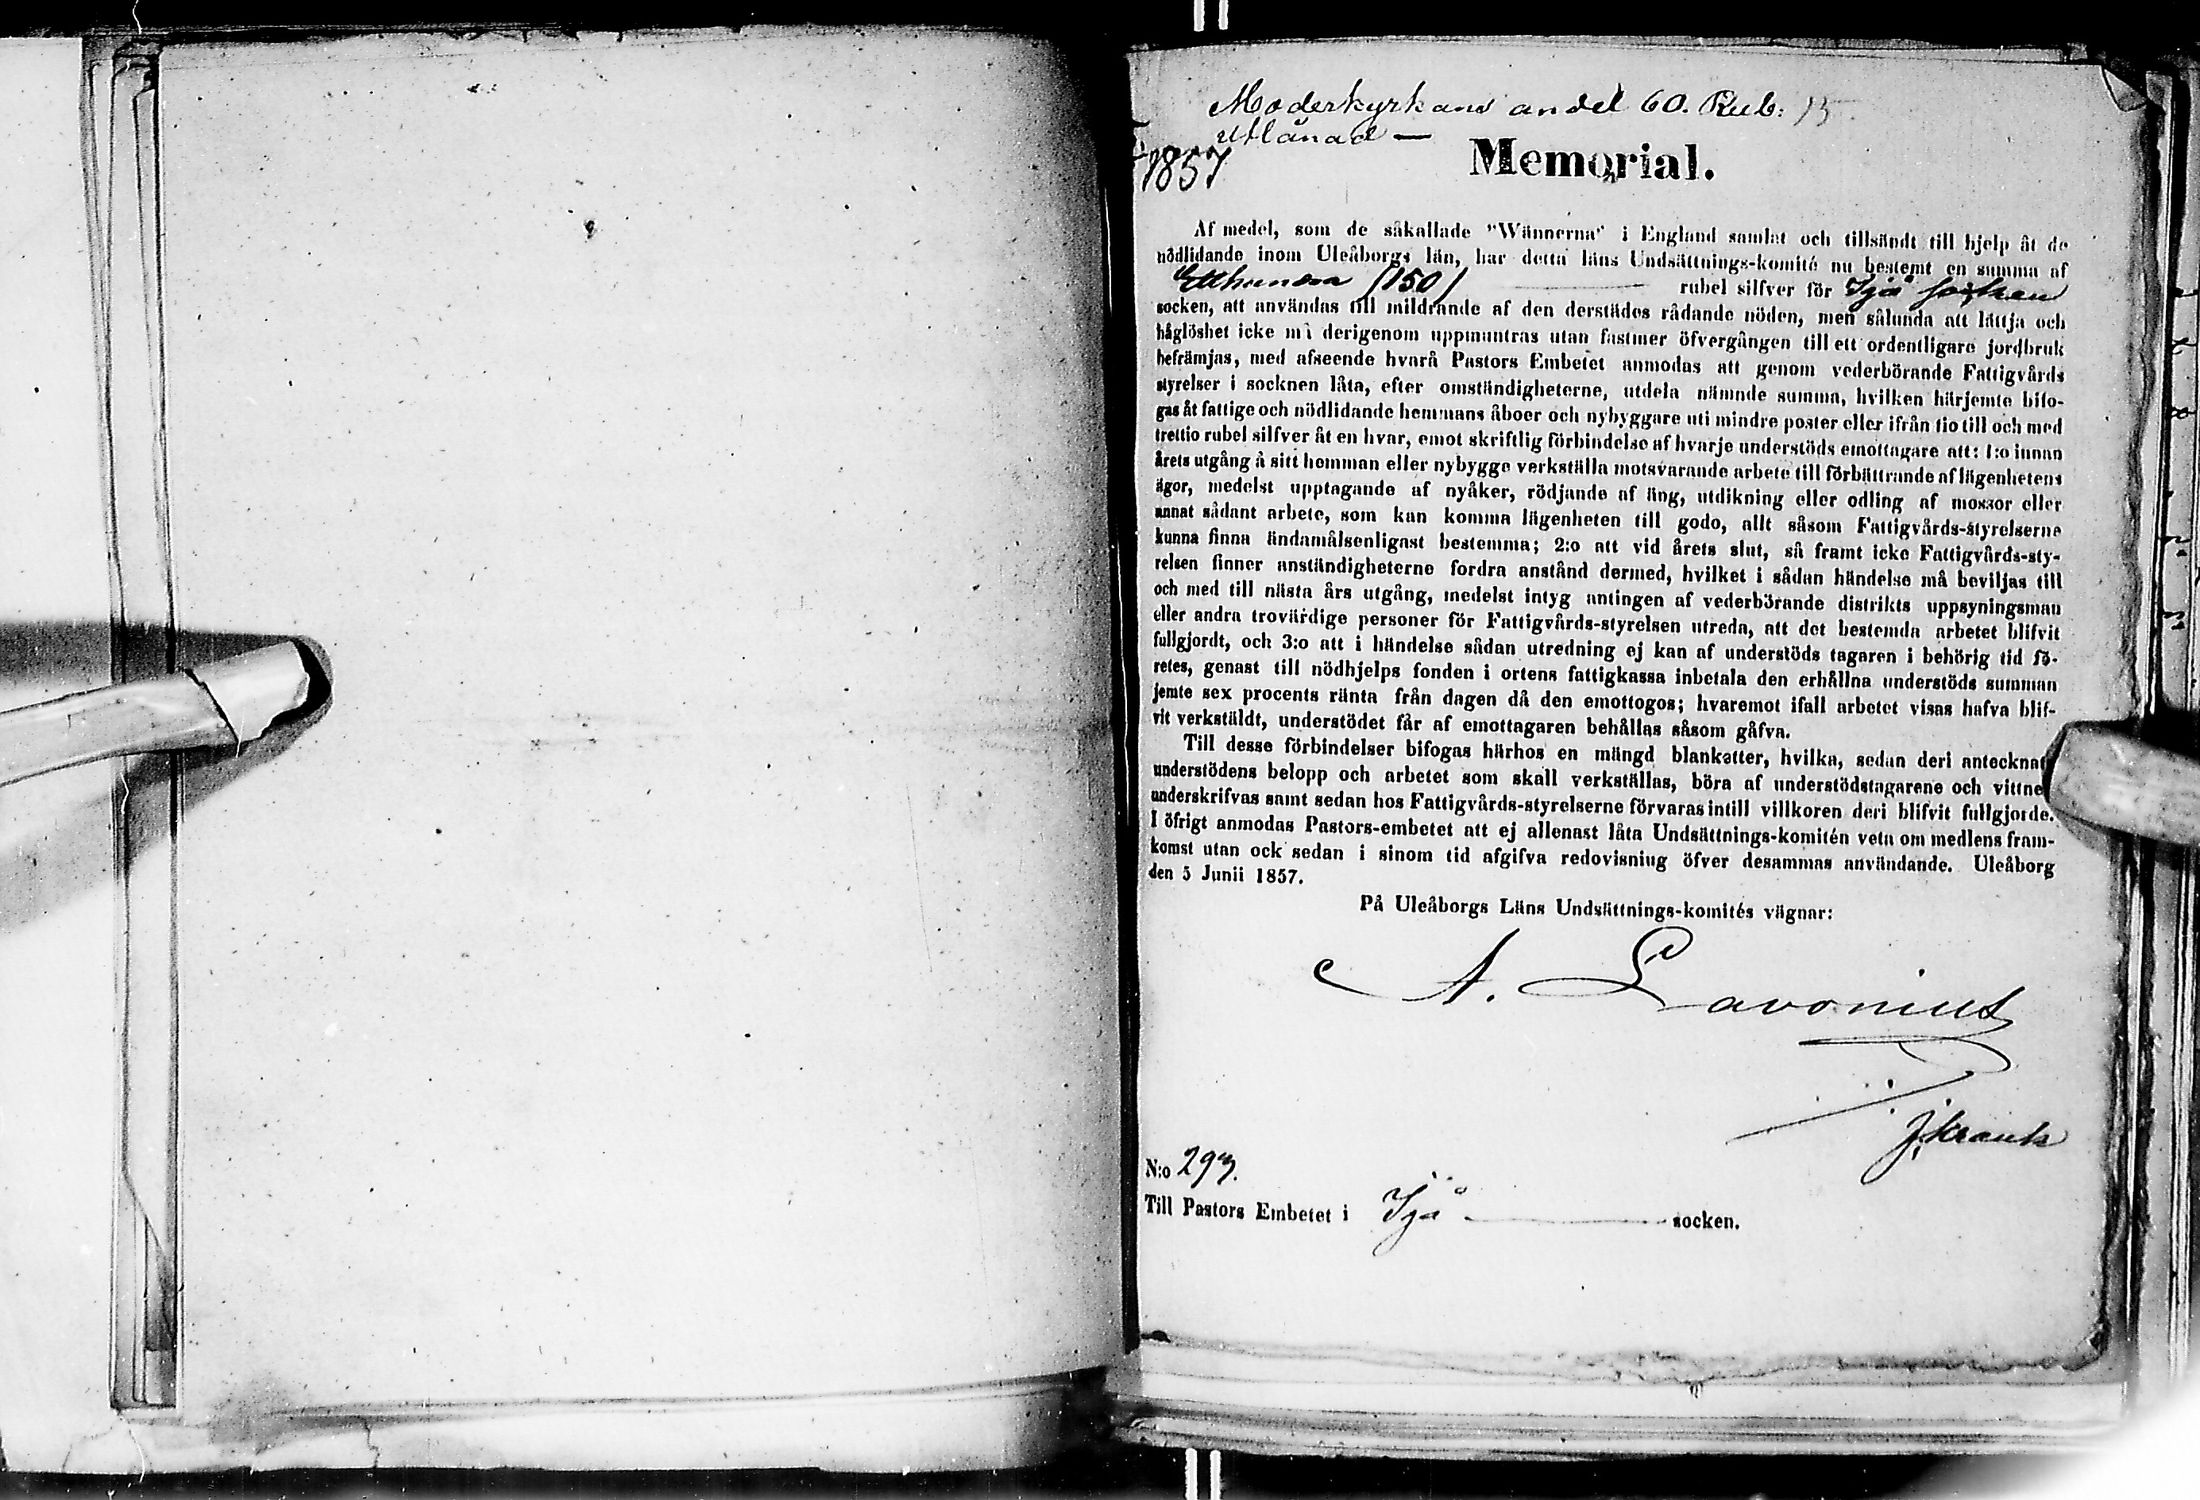 Moderkyrkans andel 60. Rub: 15
utlånad —
1857
Memorial.
Af medel, som de såkallade "Wännerna" i England samlat och tillsändt till hjelp åt de
nödlidande inom Uleåborgs län, har detta läns Undsättnings-komité nu bestemt en summa af
Etthundra (150) rubel silfver för Ijå socken
socken, att användas till mildrande af den derstädes rådande nöden, men sålunda att lättja och
håglöshet icke må derigenom uppmuntras utan fastmer öfvergången till ett ordentligare jordbruk
befrämjas, med afseende hvarå Pastors Embetet anmodas att genom vederbörande Fattigvårds
styrelser i socknen låta, efter omständigheterne, utdela nämnde summa, hvilken härjemte bifo-
gas åt fattige och nödlidande hemmans åboer och nybyggare uti mindre poster eller ifrån tio till och med
trettio rubel silfver åt en hvar, emot skriftlig förbindelse af hvarje understöds emottagare att: 1:o innan
årets utgång å sitt hemman eller nybygge verkställa motsvarande arbete till förbättrande af lägenhetens
ägor, medelst upptagande af nyåker, rödjande af äng, utdikning eller odling af mossor eller
annat sådant arbete, som kan komma lägenheten till godo, allt såsom Fattigvårds-styrelserne
kunna finna ändamålsenligast bestemma; 2:o att vid årets slut, så framt icke Fattigvårds-sty-
relsen finner anständigheterne fordra anstånd dermed, hvilket i sådan händelse må beviljas till
och med till nästa års utgång, medelst intyg antingen af vederbörande distrikts uppsyningsman
eller andra trovärdige personer för Fattigvårds-styrelsen utreda, att det bestemda arbetet blifvit
fullgjordt, och 3:o att i händelse sådan utredning ej kan af understöds tagaren i behörig tid fö-
retes, genast till nödhjelps fonden i ortens fattigkassa inbetala den erhållna understöds summan
jemte sex procents ränta från dagen då den emottogos; hvaremot ifall arbetet visas hafva blif-
vit verkstäldt, understödet får af emottagaren behållas såsom gåfva.
Till desse förbindelser bifogas härhos en mängd blanketter, hvilka, sedan deri antecknat
understödens belopp och arbetet som skall verkställas, böra af understödstagarene och vittne
underskrifvas samt sedan hos Fattigvårds-styrelserne förvaras intill villkoren deri blifvit fullgjorde.
I öfrigt anmodas Pastors-embetet att ej allenast låta Undsättnings-komitén veta om medlens fram-
komst utan ock sedan i sinom tid afgifva redovisniug öfver desammas användande. Uleåborg
den 5 Junii 1857.
På Uleåborgs Läns Undsättnings-komités vägnar:
A. Lavonius
N:o 293.
Till Pastors Embetet i Ijå socken.